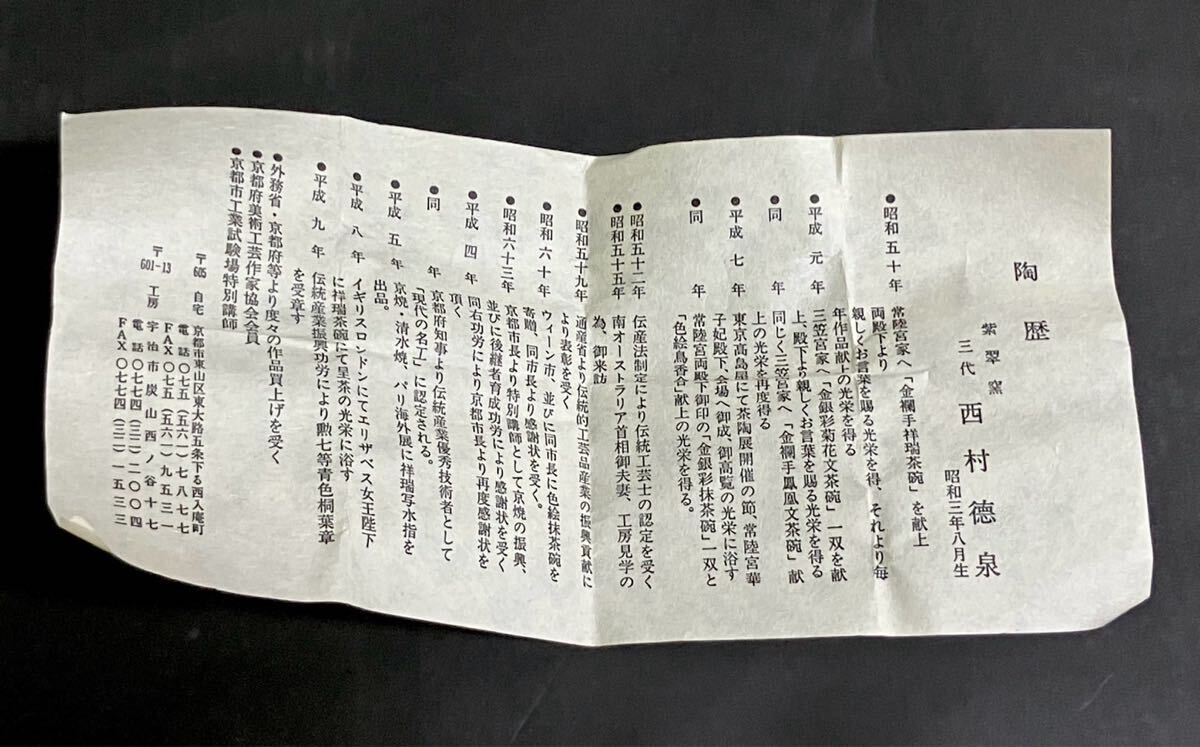 陶歴
紫翠窯
三代 西村徳泉
昭和三年八月生
●昭和五十年 常陸宮家へ「金襴手祥瑞茶碗」を献上
両殿下より
親しくお言葉を賜る光栄を得、それより毎
年作品献上の光栄を得る
●平成元年 三笠宮家へ「金銀彩菊花文茶碗」一双を献
上、殿下より親しくお言葉を賜る光栄を得る
●同年 同じく三笠宮家へ「金襴手鳳凰文茶碗」献
上の光栄を再度得る
●平成七年 東京高島屋にて茶陶展開催の節、常陸宮華
子妃殿下、会場へ御成、御高覧の光栄に浴す
●同年 常陸宮両殿下御印の「金銀彩抹茶碗」一双と
「色絵鳥香合」献上の光栄を得る。
●昭和五十二年 伝産法制定により伝統工芸士の認定を受く
●昭和五十五年 南オーストラリア首相御夫妻、工房見学の
為、御来訪
●昭和五十九年 通産省より伝統的工芸品産業の振興貢献に
より表彰を受く
●昭和六十年 ウィーン市、並びに同市長に色絵抹茶碗を
寄贈、同市長より感謝状を受く。
●昭和六十三年 京都市長より特別講師として京焼の振興、
並びに後継者育成功労により感謝状を受く
●平成四年 同右功労により京都市長より再度感謝状を
頂く
●同年 京都府知事より伝統産業優秀技術者として
「現代の名工」に認定される。
●平成五年 京焼・清水焼、パリ海外展に祥瑞写水指を
出品。
●平成八年 イギリスロンドンにてエリザベス女王陛下
に祥瑞茶碗にて呈茶の光栄に浴す
●平成九年 伝統産業振興功労により勲七等青色桐葉章
を受章す
●外務省・京都府等より度々の作品買上げを受く
●京都府美術工芸作家協会会員
●京都市工業試験場特別講師
〒605 自宅 京都市東山区東大路五条下る西入庵町
電話〇七五(五六一)七八七七
FAX〇七五(五六一)九五三一
〒601-13 工房 宇治市炭山西ノ谷十七
電話〇七七四(三二)二〇〇四
FAX〇七七四(三二)一五三三